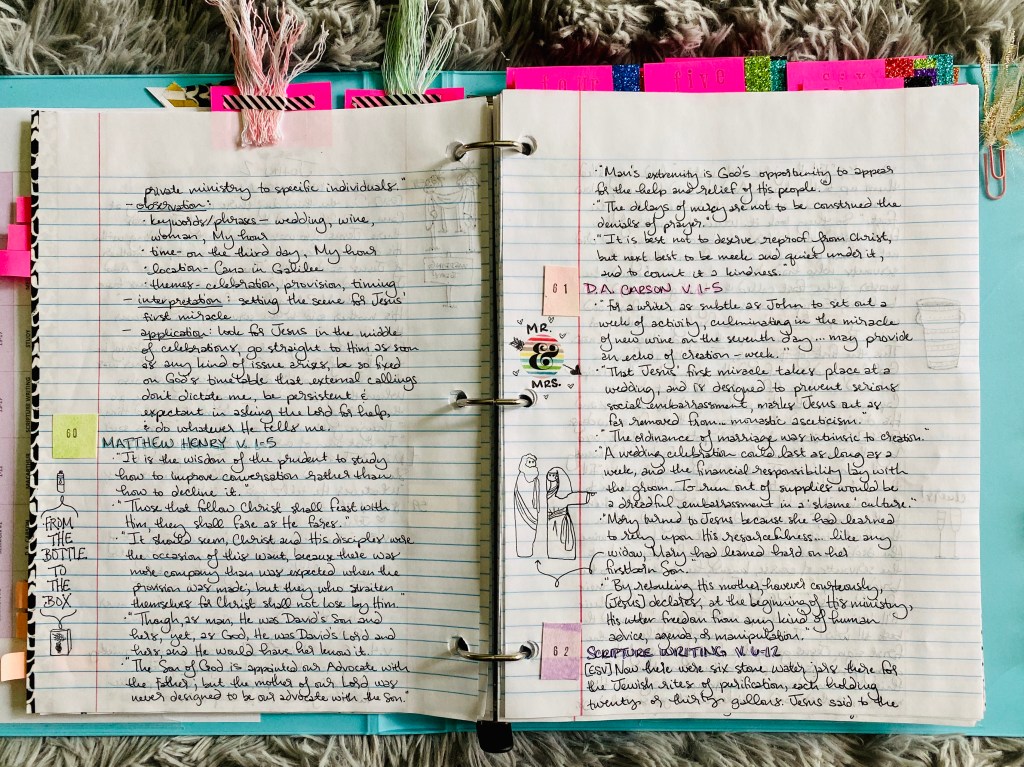 four
five
private ministry to specific individuals."
- observation:
· keywords/phrases - wedding, wine,
woman, My hour
· time - on the third day, My hour
· location - Cana in Galilee
· themes - celebration, provision, timing
- interpretation: setting the scene for Jesus'
first miracle
- application: look for Jesus in the middle
of celebrations, go straight to Him as soon
as any kind of issue arises, be so fixed
on God's timetable that external callings
don't dictate me, be persistent &
expectant in asking the Lord for help,
& do whatever He tells me.
60
MATTHEW HENRY V. 1-5
· "It is the wisdom of the prudent to study
how to improve conversation rather than
how to decline it."
· "Those that follow Christ shall feast with
Him, they shall fare as He fares."
· "It should seem, Christ and His disciples were
the occasion of this want, because there was
more company than was expected when the
provision was made; but they who straiten
themselves for Christ shall not lose by Him."
· "Though, as man, He was David's Son and
hers, yet, as God, He was David's Lord and
hers, and He would have her know it.
· "The Son of God is appointed our Advocate with
the Father; but the mother of our Lord was
never designed to be our advocate with the Son."
FROM
THE
BOTTLE
TO
THE
BOX
· "Man's extremity is God's opportunity to appear
for the help and relief of His people."
· "The delays of mercy are not to be construed the
denials of prayer."
· "It is best not to deserve reproof from Christ,
but next best to be meek and quiet under it,
and to count it a kindness."
61
D.A. CARSON V. 1-5
· "For a writer as subtle as John to set out a
week of activity, culminating in the miracle
of new wine on the seventh day... may provide
an echo of creation-week."
· "That Jesus' first miracle takes place at a
wedding, and is designed to prevent serious
social embarrassment, marks Jesus out as
far removed from... monastic asceticism."
· "The ordinance of marriage was intrinsic to creation."
· "A wedding celebration could last as long as a
week, and the financial responsibility lay with
the groom. To run out of supplies would be
a dreadful embarrassment in a 'shame' culture."
· "Mary turned to Jesus because she had learned
to rely upon His resourcefulness... like any
widow, Mary had leaned hard on her
firstborn Son."
· "By rebuking His mother, however courteously,
[Jesus] declares, at the beginning of His ministry,
His utter freedom from any kind of human
advice, agenda, or manipulation."
62
SCRIPTURE WRITING V. 6-12
[ESV] Now there were six stone water jars there for
the Jewish rites of purification, each holding
twenty or thirty gallons. Jesus said to the
MR.
&
MRS.